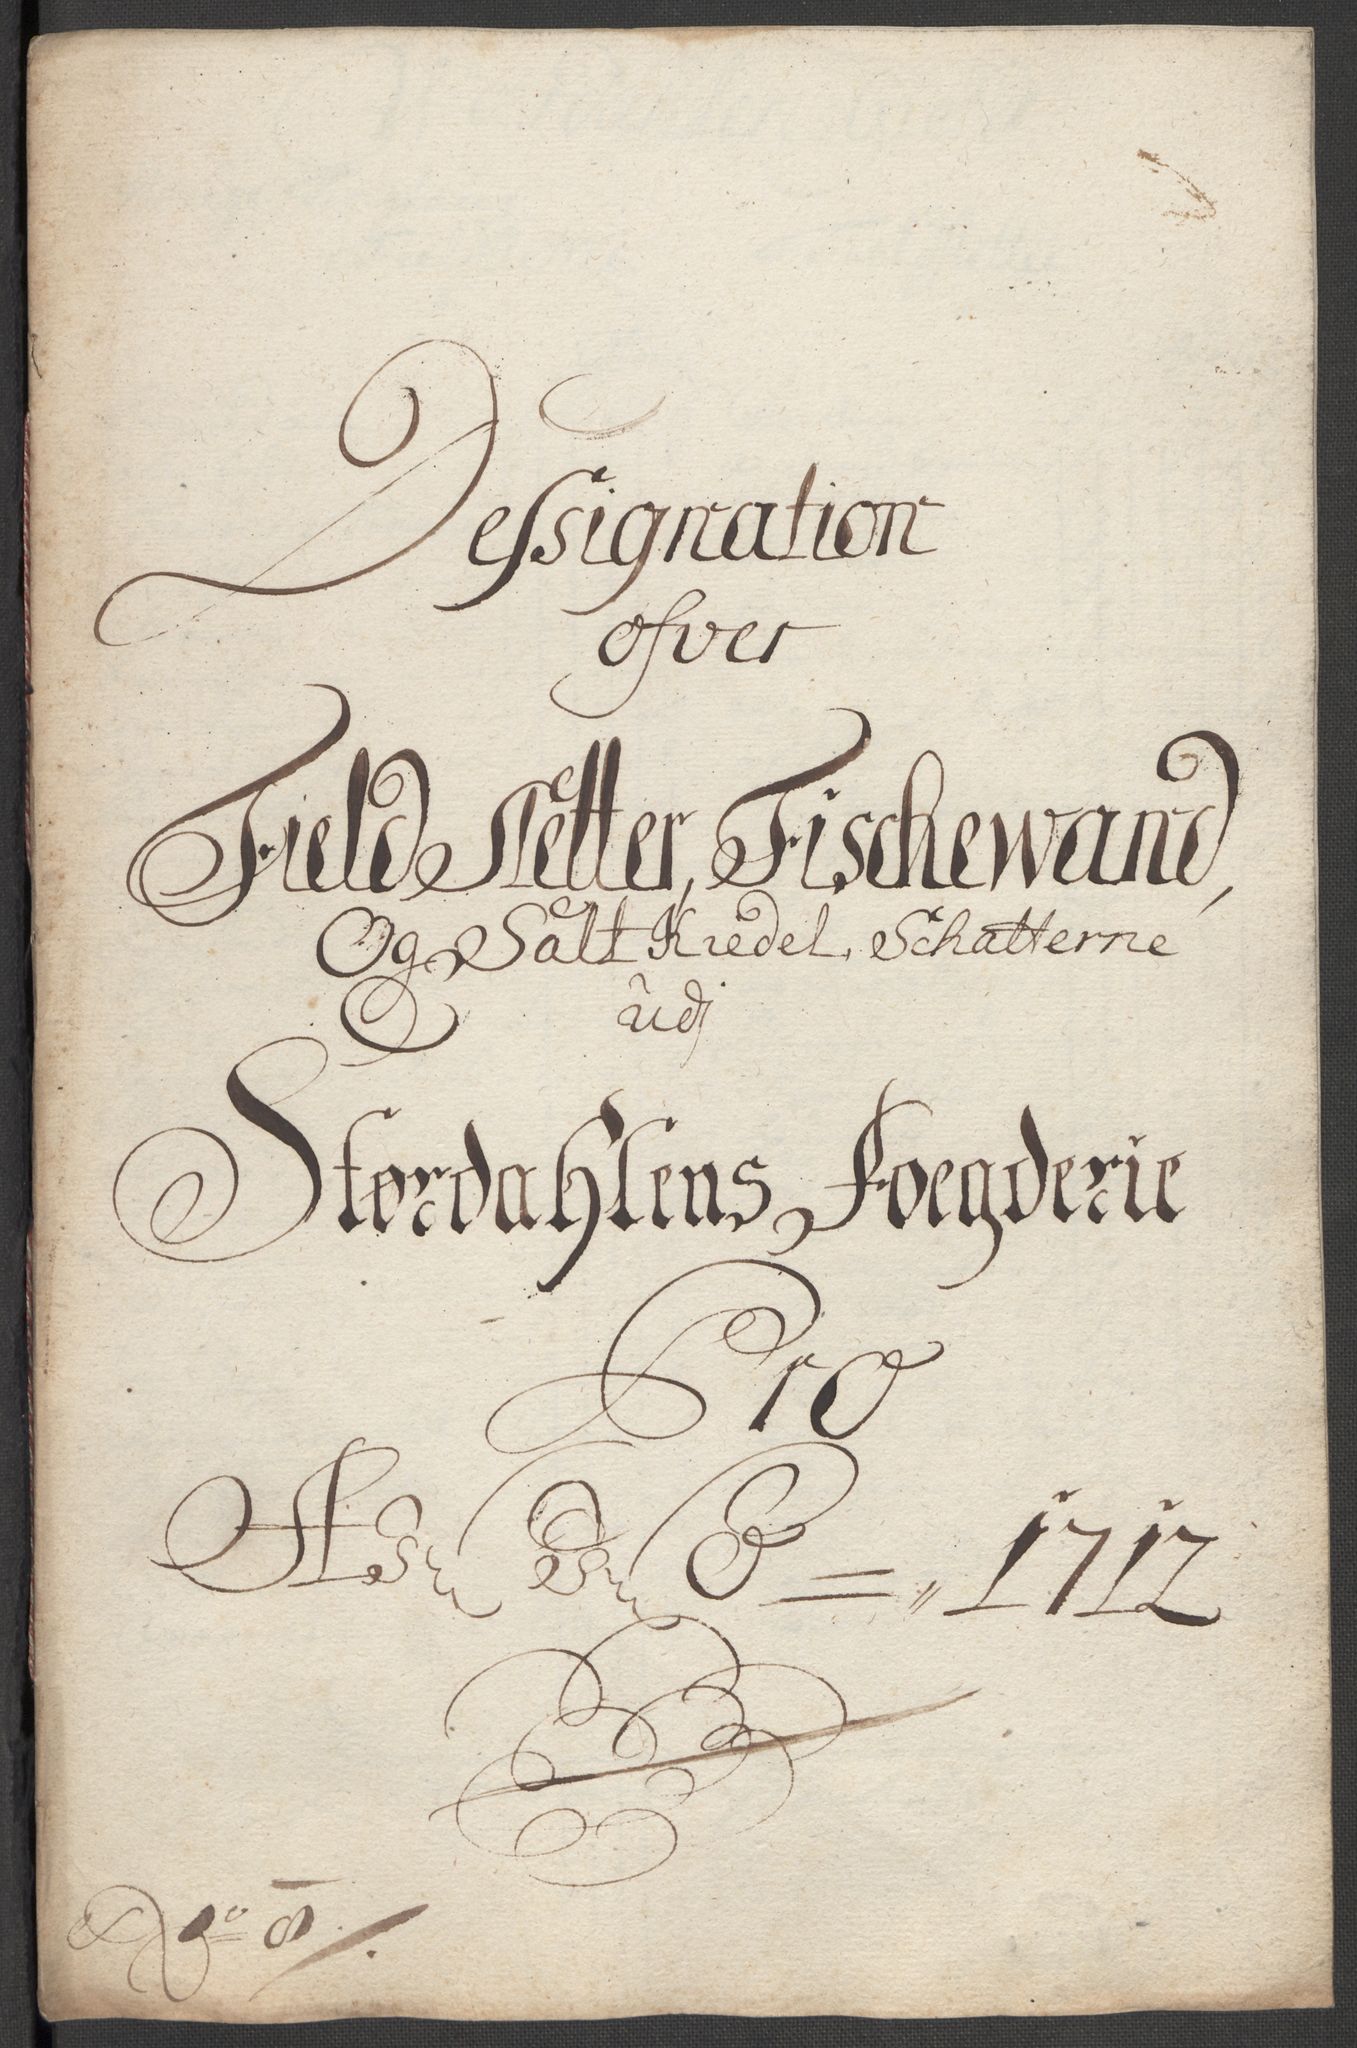 Dessignation
ofver
Field Sletter, Fischewand,
Og Salt Kiedel, Schatterne
udj
Størdahlens Foegderie
Pro
Anno 1712
No 8